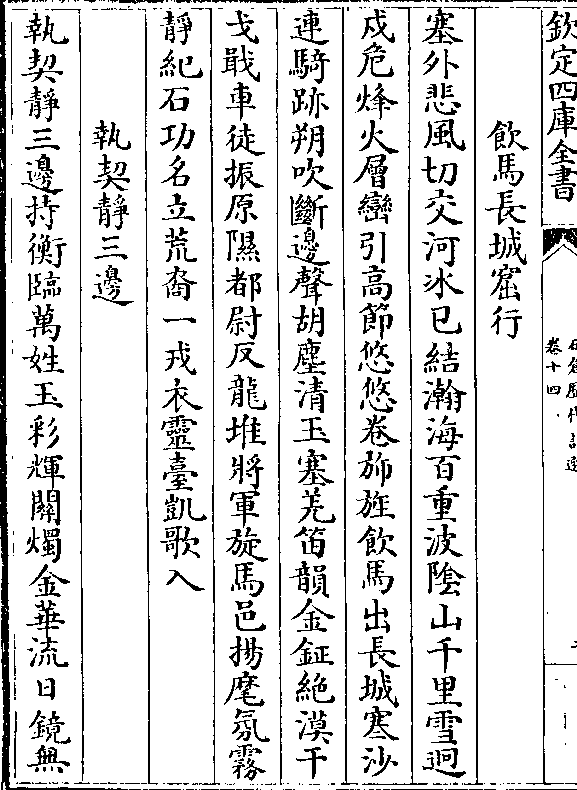 欽定四庫全書
卷十四
飲馬長城窟行
塞外悲風切交河冰已結瀚海百重波陰山千里雪迥
戍危烽火層巒引高節悠悠卷斾旌飲馬出長城塞沙
連騎跡朔吹斷邊聲胡塵清玉塞羌笛韻金鉦絶漠干
戈戢車徒振原隰都尉反龍堆將軍旋馬邑揚麾氛霧
靜紀石功名立荒裔一戎衣靈臺凱歌入
執契靜三邊
執契靜三邊持衡臨萬姓玉彩輝關燭金華流日鏡無